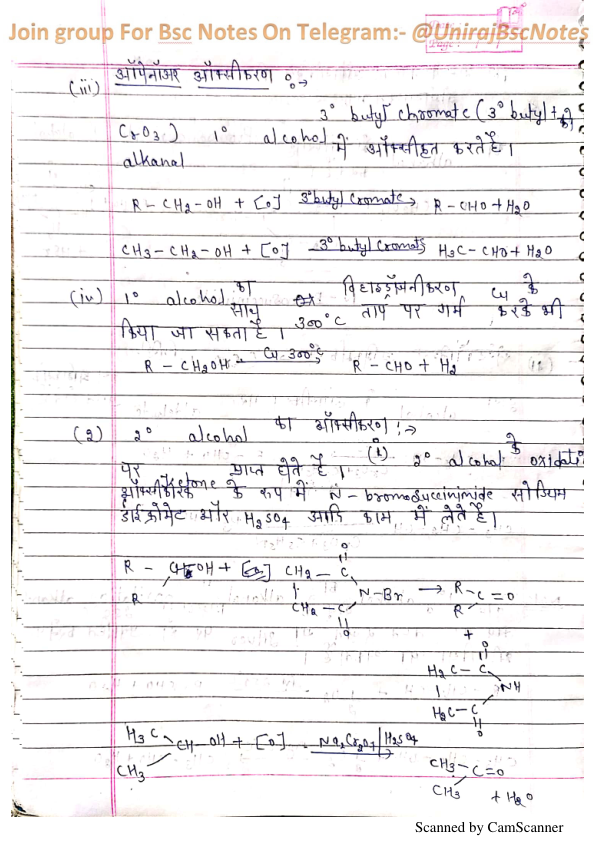 Join group For Bsc Notes On Telegram:- @UnirajBscNotes
(iii) ऑपेनॉअर ऑक्सीकरण :→
3° butyl chromate (3° butyl +
CrO3) 1° alcohol में ऑक्सीकृत करते हैं।
alkanal
R - CH2-OH + [O] 3°butyl cromate→ R-CHO + H2O
CH3-CH2-OH + [O] 3°butyl cromate→ H3C-CHO + H2O
(iv) 1° alcohol का विहाइड्रॉजनीकरण Cu के
साथ 300°C ताप पर गर्म करके भी
किया जा सकता है।
R - CH2OH Cu 300°C→ R - CHO + H2
(2) 2° alcohol का ऑक्सीकरण :→
(1) 2° alcohol के oxidati
पर Ketone प्राप्त होते हैं।
ऑक्सीकारक के रूप में N-bromosuccinimide सोडियम
डाईक्रोमेट और H2SO4 आदि काम में लेते हैं।
O
R - CHOH + [O] CH2 - C
R N-Br → R R C=O
CH2 - C
O +
O
H2C - C
NH
H2C - C
O
H3C CH3 CH-OH + [O] Na2Cr2O7/H2SO4→
CH3 CH3 C=O
+ H2O
Scanned by CamScanner